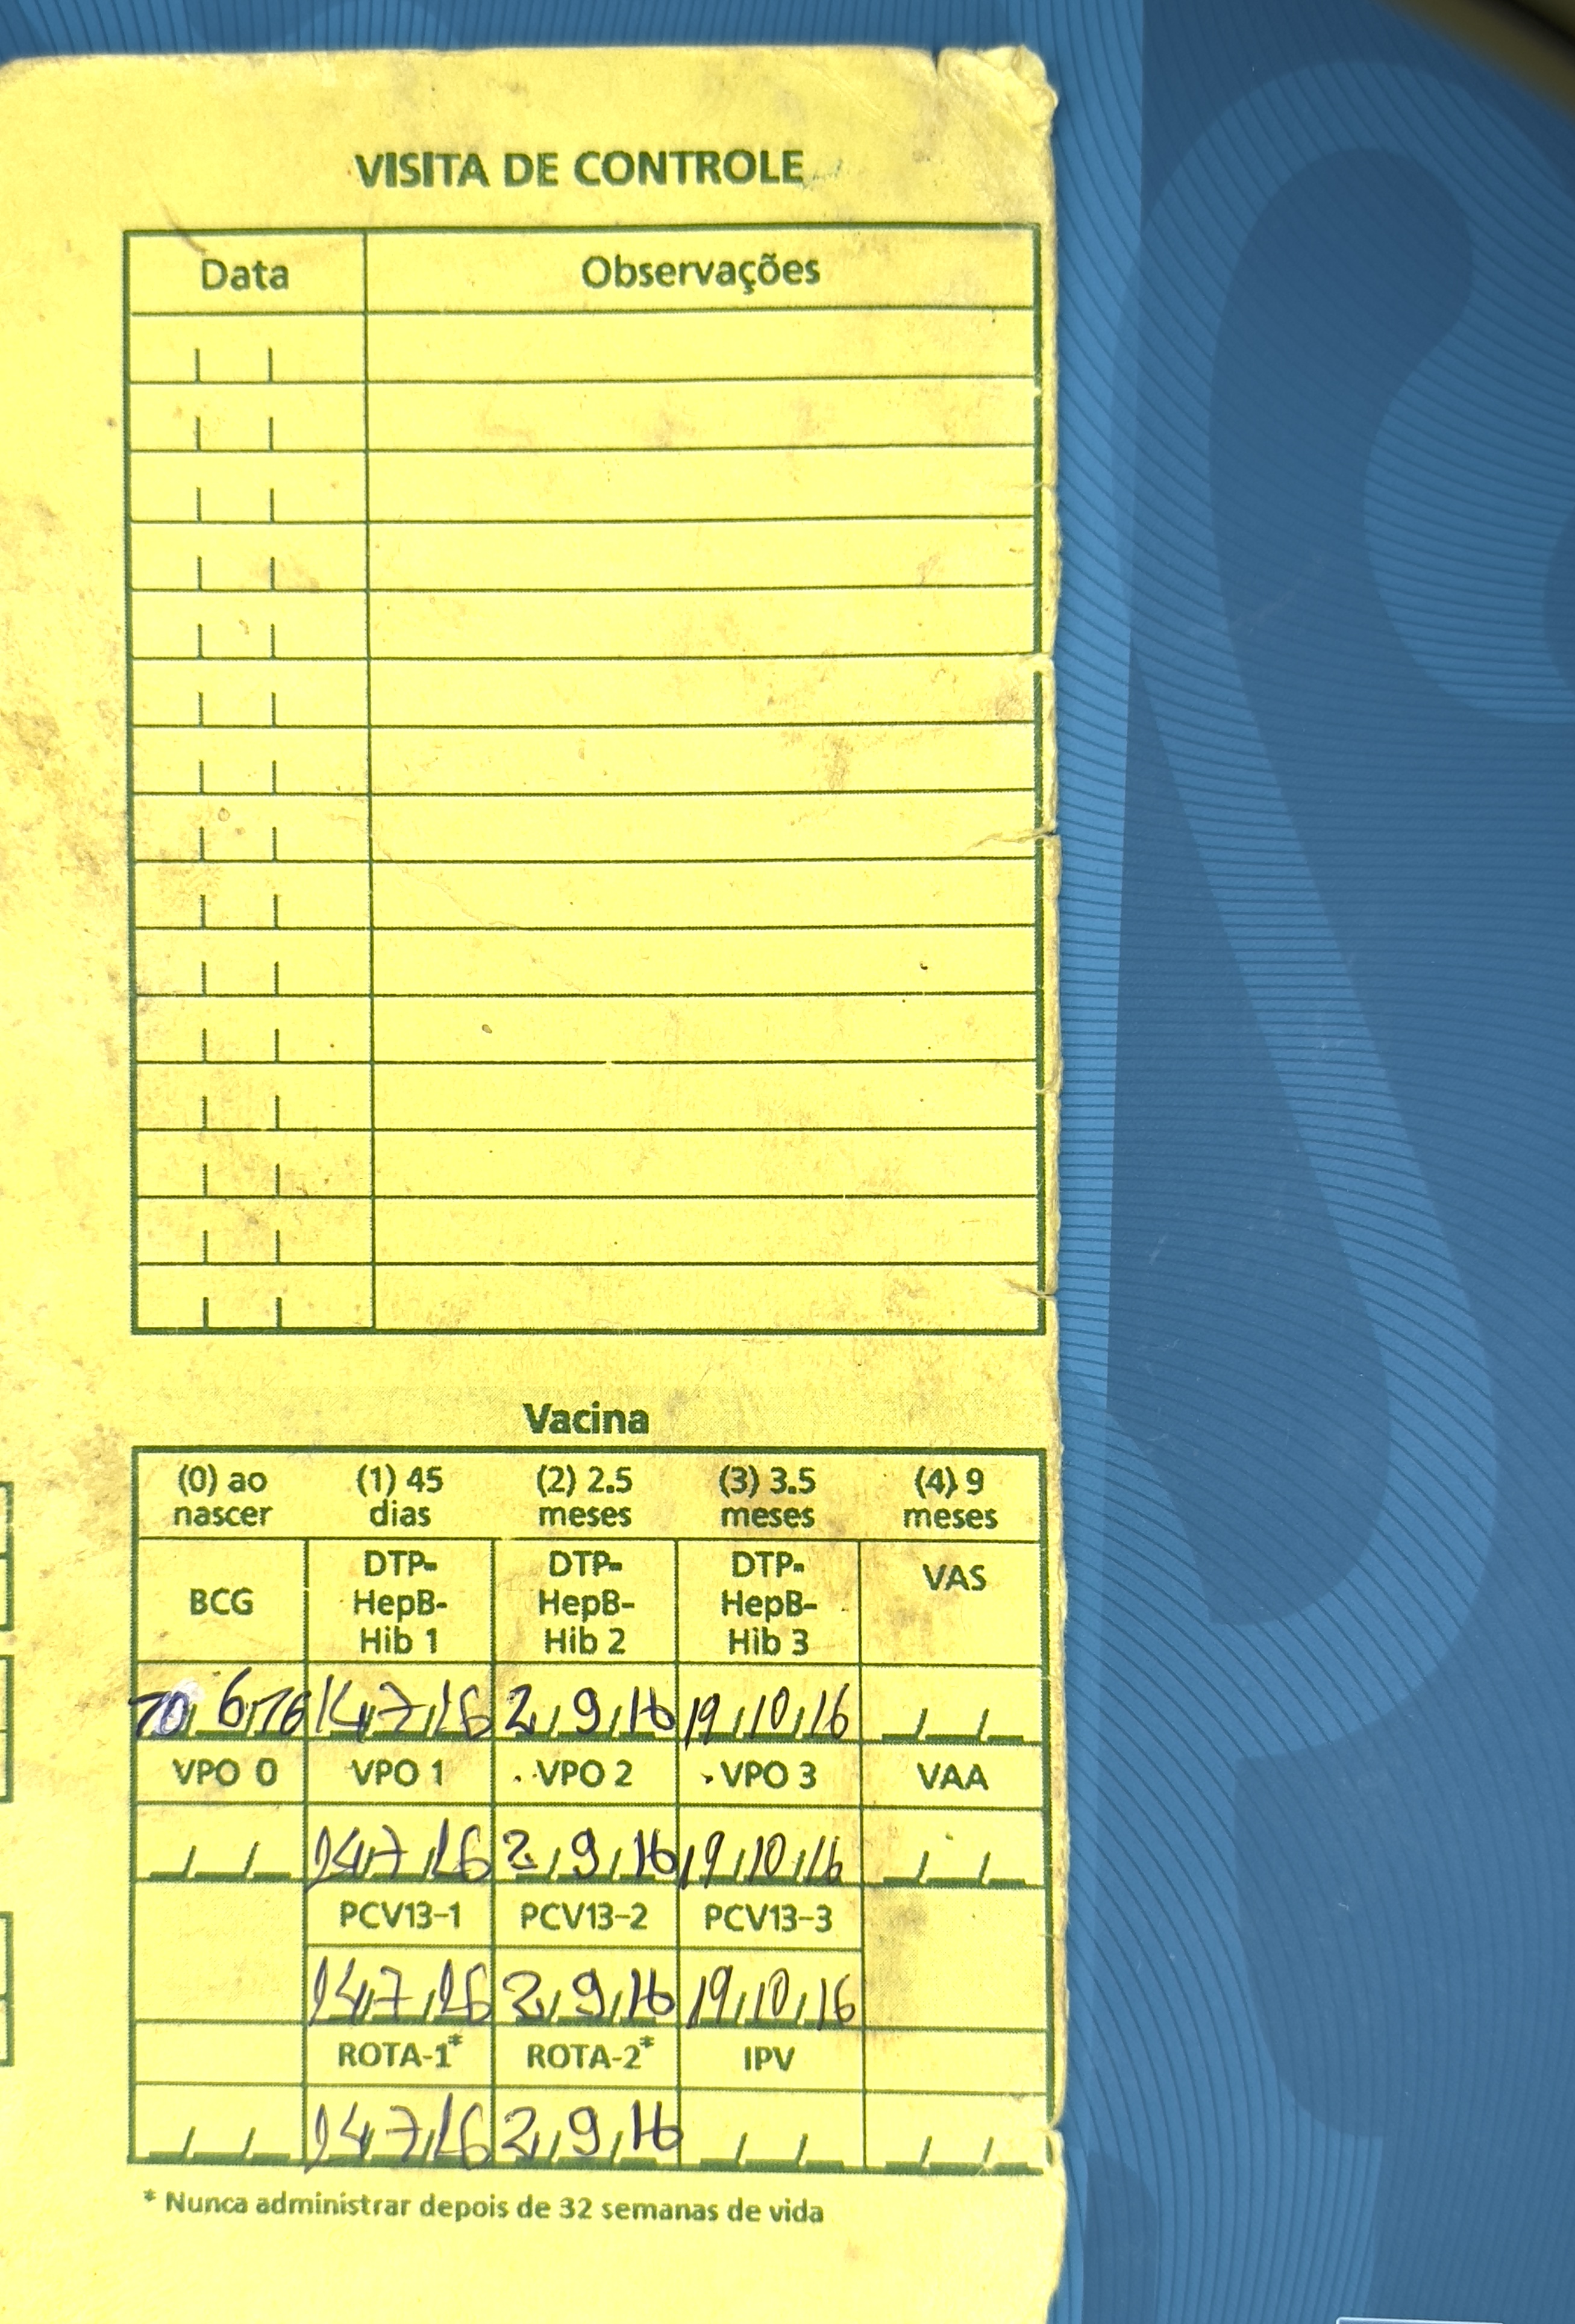 VISITA DE CONTROLE
Data Observações
Vacina
(0) ao nascer (1) 45 dias (2) 2.5 meses (3) 3.5 meses (4) 9 meses
BCG DTP-HepB-Hib 1 DTP-HepB-Hib 2 DTP-HepB-Hib 3 VAS
6/16 14/7/16 2/9/16 19/10/16
VPO 0 VPO 1 VPO 2 VPO 3 VAA
14/7/16 2/9/16 19/10/16
PCV13-1 PCV13-2 PCV13-3
14/7/16 2/9/16 19/10/16
ROTA-1* ROTA-2* IPV
14/7/16 2/9/16
* Nunca administrar depois de 32 semanas de vida